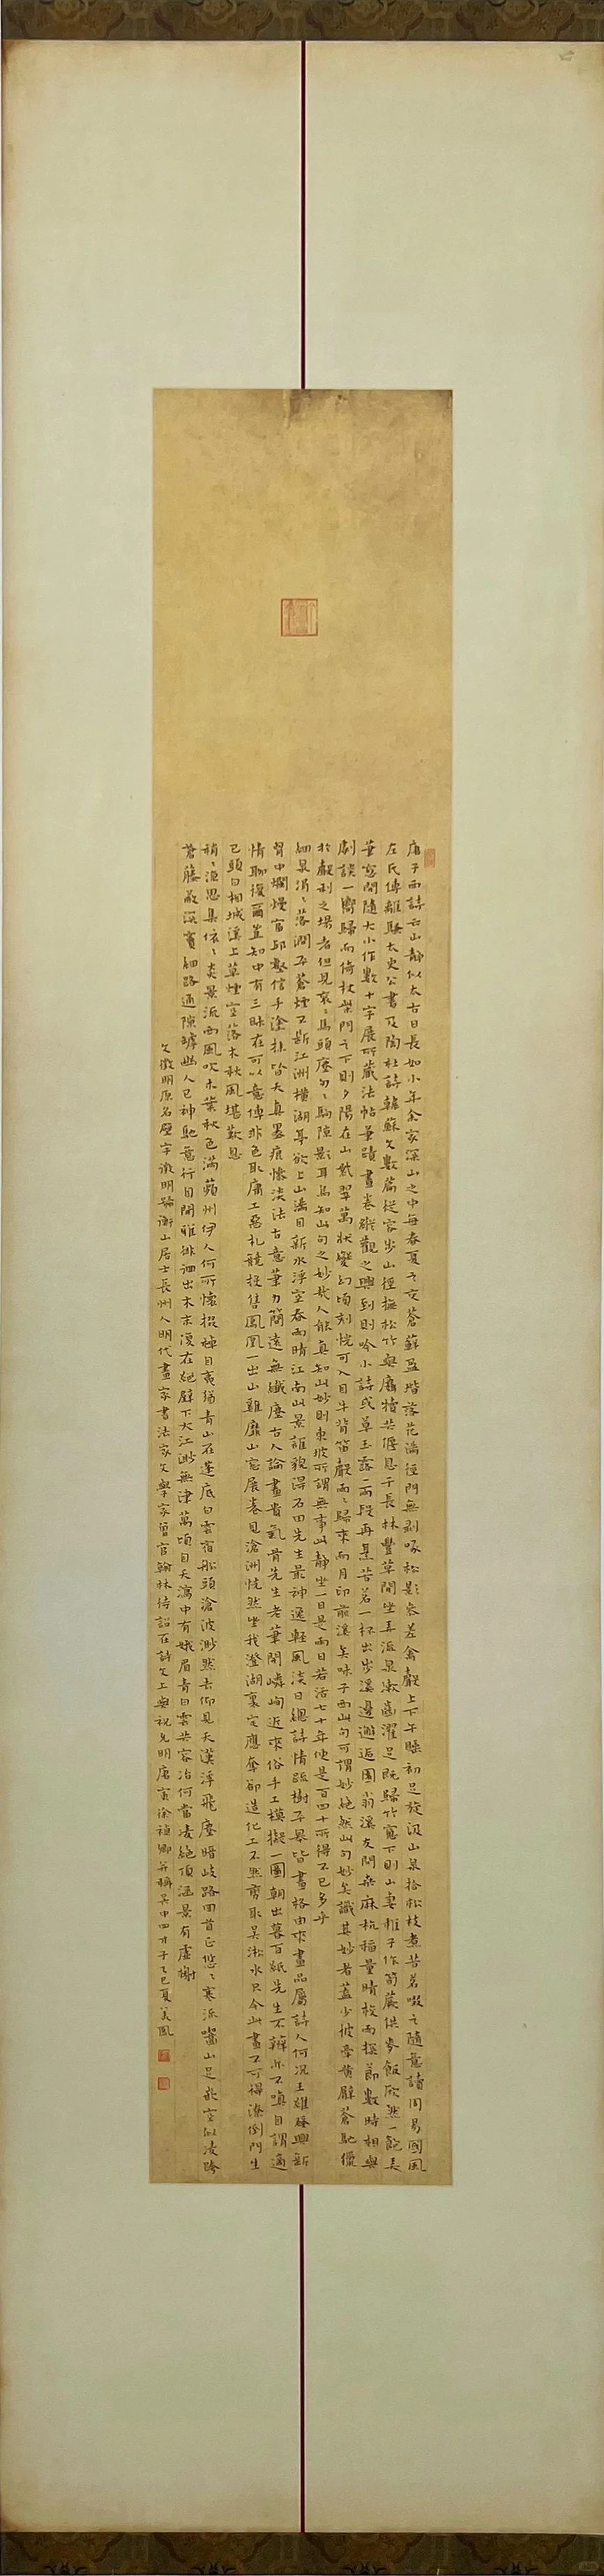 唐子西詩云山靜似太古日長如小年余家深山之中每春夏之交蒼蘚盈堦落花滿徑門無剥啄松影參差禽聲上下午睡初足旋汲山泉拾松枝煮苦茗啜之隨意讀周易國風
左氏傳離騷太史公書及陶杜詩韓蘇文數篇從容步山徑撫松竹與麛犢共偃息于長林豐草間坐弄流泉漱齒濯足既歸竹窗下則山妻稚子作筍蕨供麥飯欣然一飽弄
筆窗間隨大小作數十字展所藏法帖筆蹟畫卷縱觀之興到則吟小詩或草玉露一兩段再烹苦茗一杯出步溪邊邂逅園翁溪友問桑麻杭稻量晴校雨探節數時相與
劇談一嚮歸而倚杖柴門之下則夕陽在山紫翠萬狀變幻頃刻恍可入目牛背笛聲兩兩歸來而月印前溪矣味子西此句可謂妙絕然此句妙矣識其妙者蓋少彼牽黄臂蒼馳獵
於聲利之場者但見衮衮馬頭塵匆匆駒隙影耳烏知此句之妙哉人能真知此妙則東坡所謂無事此靜坐一日是兩日若活七十年便是百四十所得不已多乎
細泉涓涓落澗平蒼煙不斷江洲橫湖亭欲上山滿目新水浮空春雨晴江南此景誰貌得石田先生最神逸輕風淡日總詩情疏樹平皋皆畫格由來畫品屬詩人何況王維發興新
胸中爛熳富邱壑信手塗抹皆天真墨痕慘淡法古意筆力簡遠無纖塵古人論畫貴氣骨先生老筆開嶙峋近來俗手工模擬一圖朝出暮百紙先生不辯亦不嗔自謂適
情聊復爾豈知中有三昧在可以意傳非色取庸工惡札競投售鳳凰一出山雞靡山窗展卷見滄洲恍然坐我澄湖裏定應奪卻造化工不然剪取吴淞水只今此畫不可得潦倒門生
已頭白相城溪上草煙空落木秋風堪歎息
稍稍漁思集依依炎景流西風吹木葉秋色滿蘋州伊人何所懷投棹自夷猶青山在蓬底白雲宿船頭滄波渺然去仰見天漢浮飛塵暗歧路回首正悠悠寒流嚙山足飛空似凌跨
蒼藤蔽深竇細路通隙罅幽人已神馳意行自閒雅徘徊出木末復在絕壁下大江渺無津萬頃自天瀉中有娥眉青白雲共容冶何當凌絕頂滙景有虛榭
文徵明原名壁字徵明號衡山居士長州人明代畫家書法家文學家曾官翰林待詔在詩文上與祝允明唐寅徐禎卿并稱吴中四才子乙巳夏美鳳